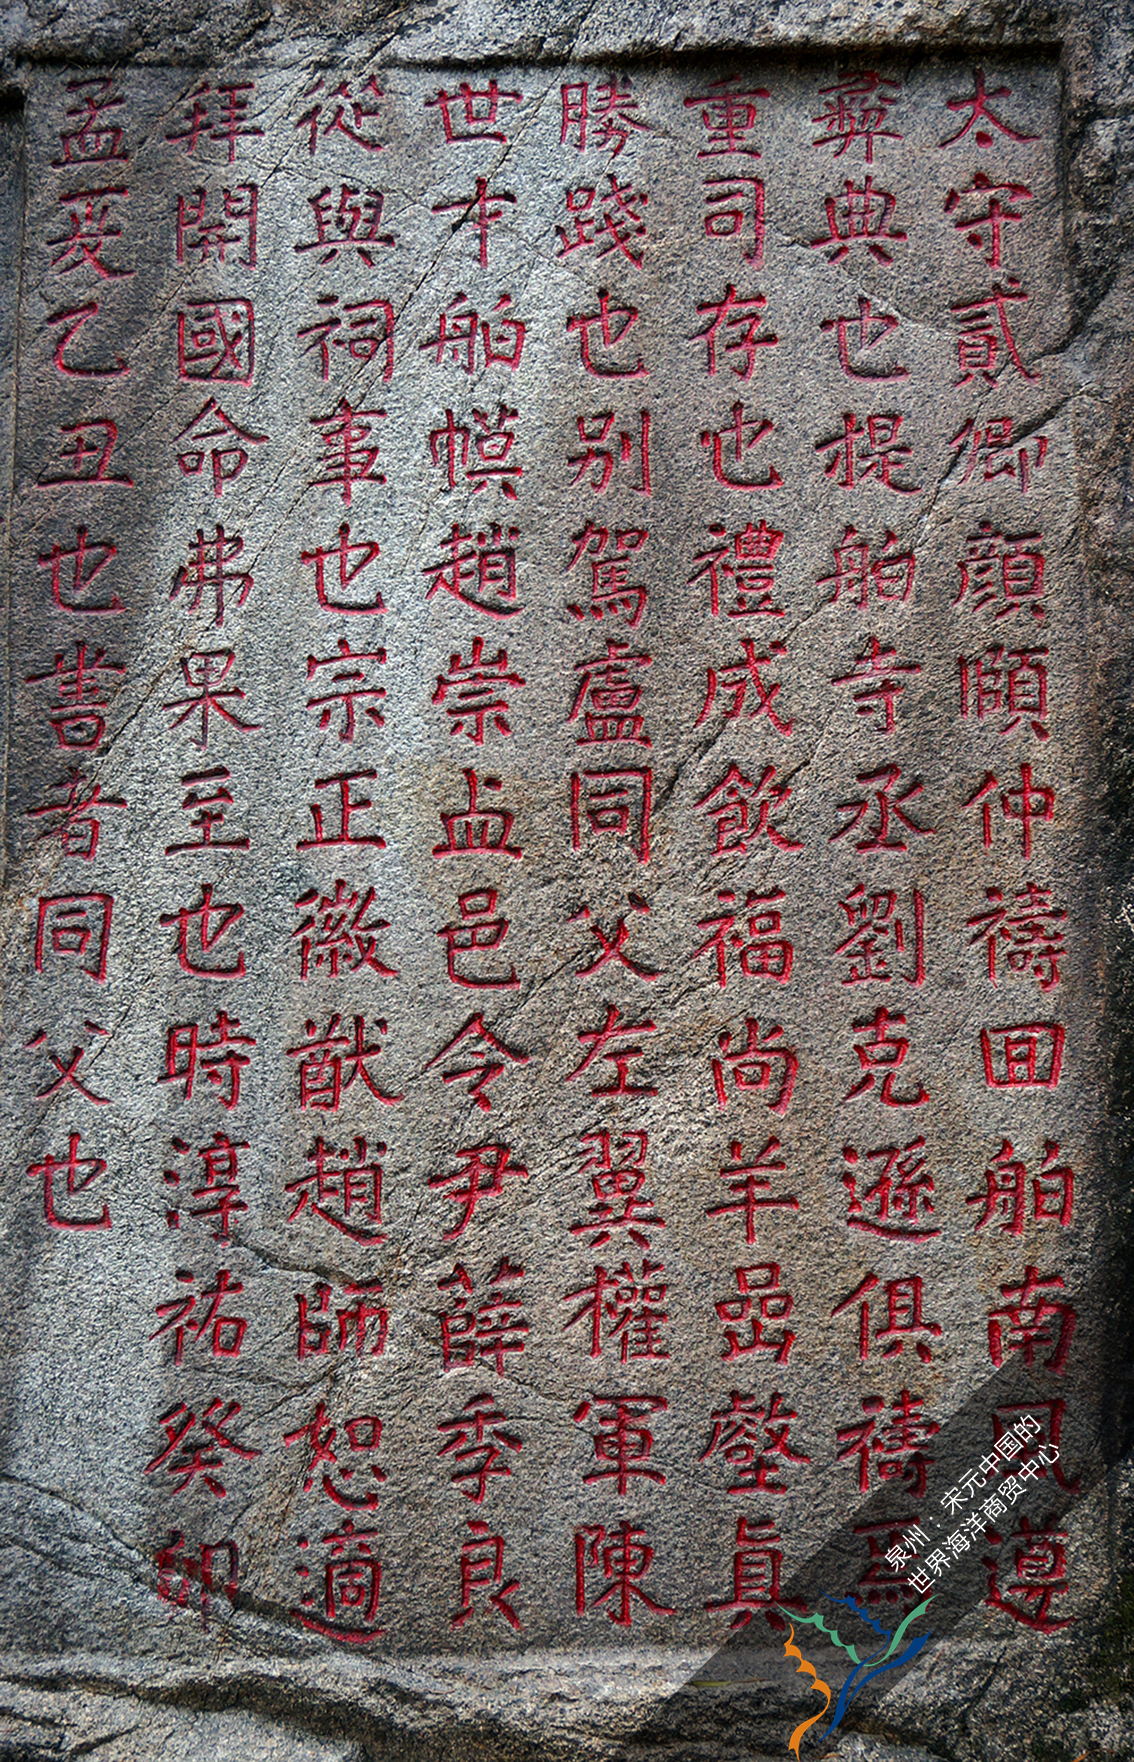 太守貳卿顔頤仲禱回舶南風遵
彝典也提舶寺丞劉克遜俱禱焉
重司存也禮成飲福尚羊嵒壑眞
勝踐也别駕盧同父左翼權軍陳
世才舶幙趙崇邑令尹薛季良
從與祠事也宗正徽猷趙師恕適
拜開國命弗果至也時淳祐癸卯
孟夏乙丑也書者同父也
泉州：宋元中国的
世界海洋商贸中心